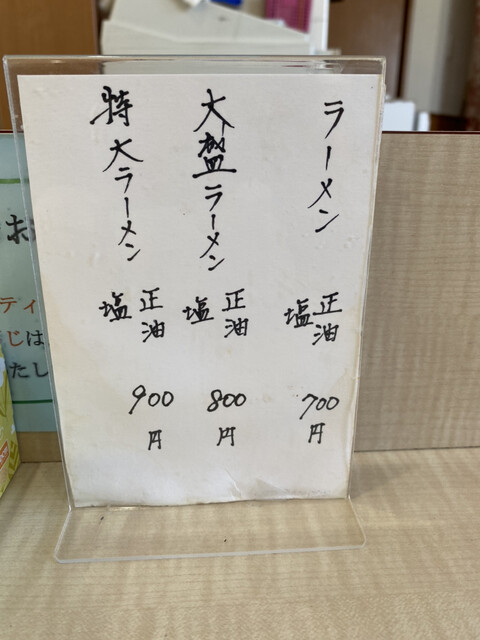 ラーメン
正油
塩
700
円
大盛ラーメン
正油
塩
800
円
特大ラーメン
正油
塩
900
円
お
ティ
じは
たし